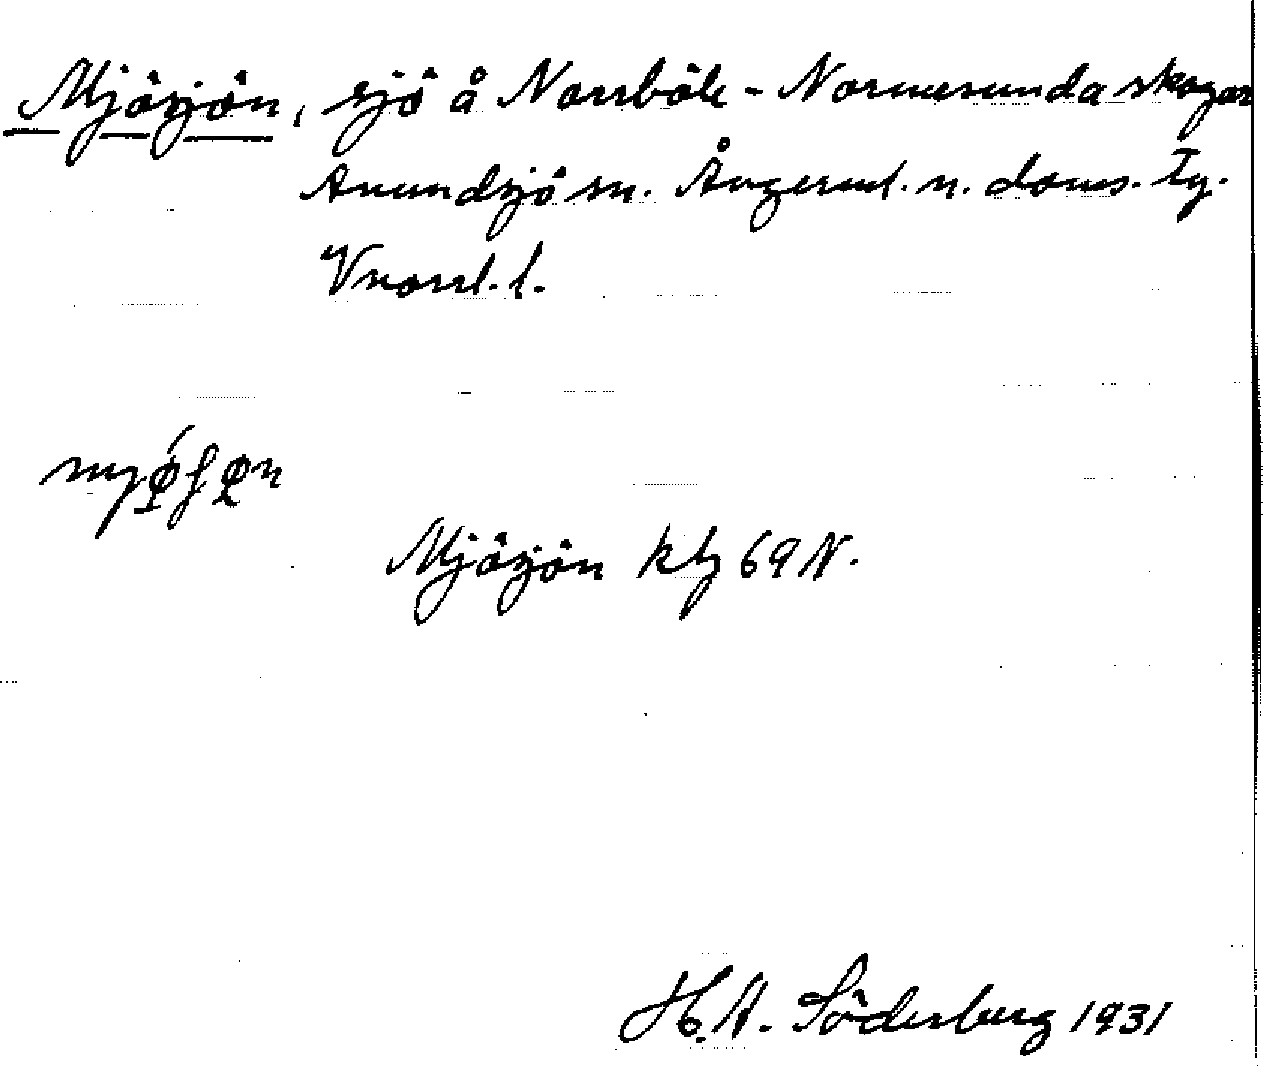 Mjösjön, sjö å Norrböle - Normesunda skogar
Anundsjö sn. Ångerml. n. doms. Tg.
Vnorrl. l.
Mjösjön kbl 69 N.
H. A. Söderberg 1931